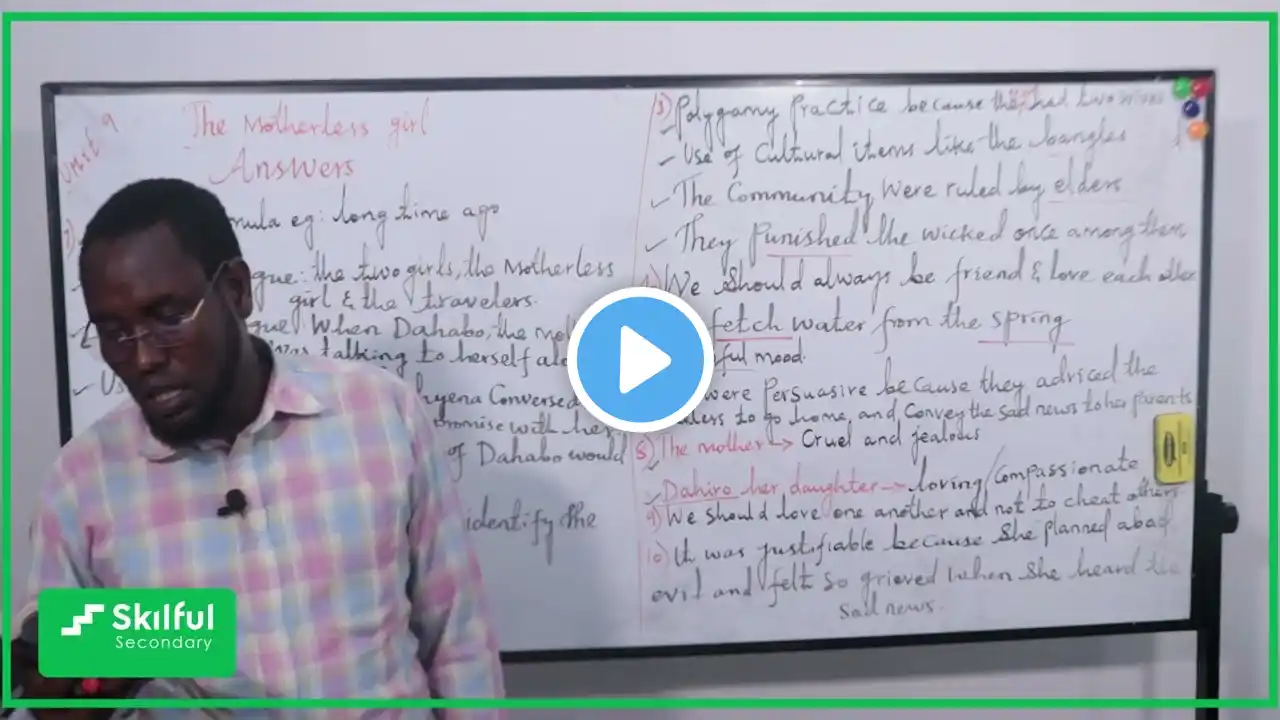 Unit 9
The Motherless girl
Answers
1)
mula eg: long time ago
gue: the two girls, the Motherless
girl & the travelers.
gue! When Dahabo, the
was talking to herself
hyena Conversed
promise with her
of Dahabo would
identify the
3) Polygamy Practice because had two wives
- Use of Cultural items like the bangles
✓ The Community were ruled by elders
✓ They punished the wicked once among them
We should always be friend & love each other
fetch water from the spring
ful mood.
were Persuasive because they adviced the
to go home, and Convey the sad news to her parents
8) The mother → Cruel and jealous
Dahiro her daughter → loving/compassionate
9) We should love one another and not to cheat others
10) It was justifiable because She planned a bad
evil and felt so grieved when she heard the
Sad news.
Skilful
Secondary